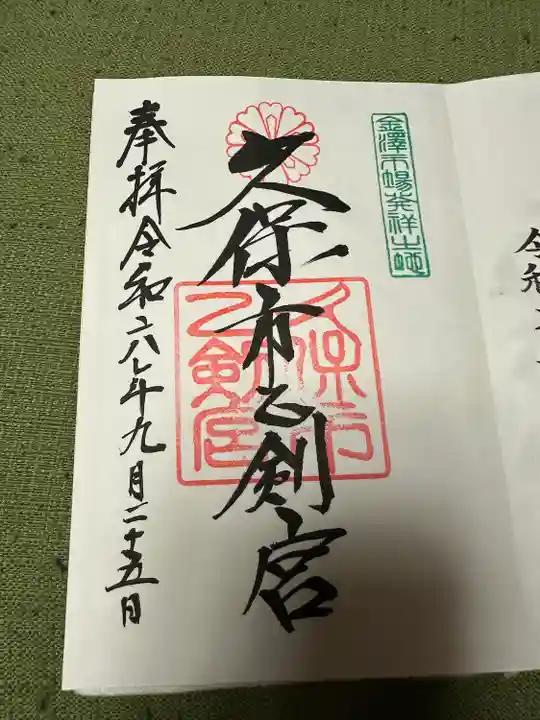 金澤市場発祥之地
久保市乙剣宮
久保市乙剣宮
奉拝令和六年九月二十五日